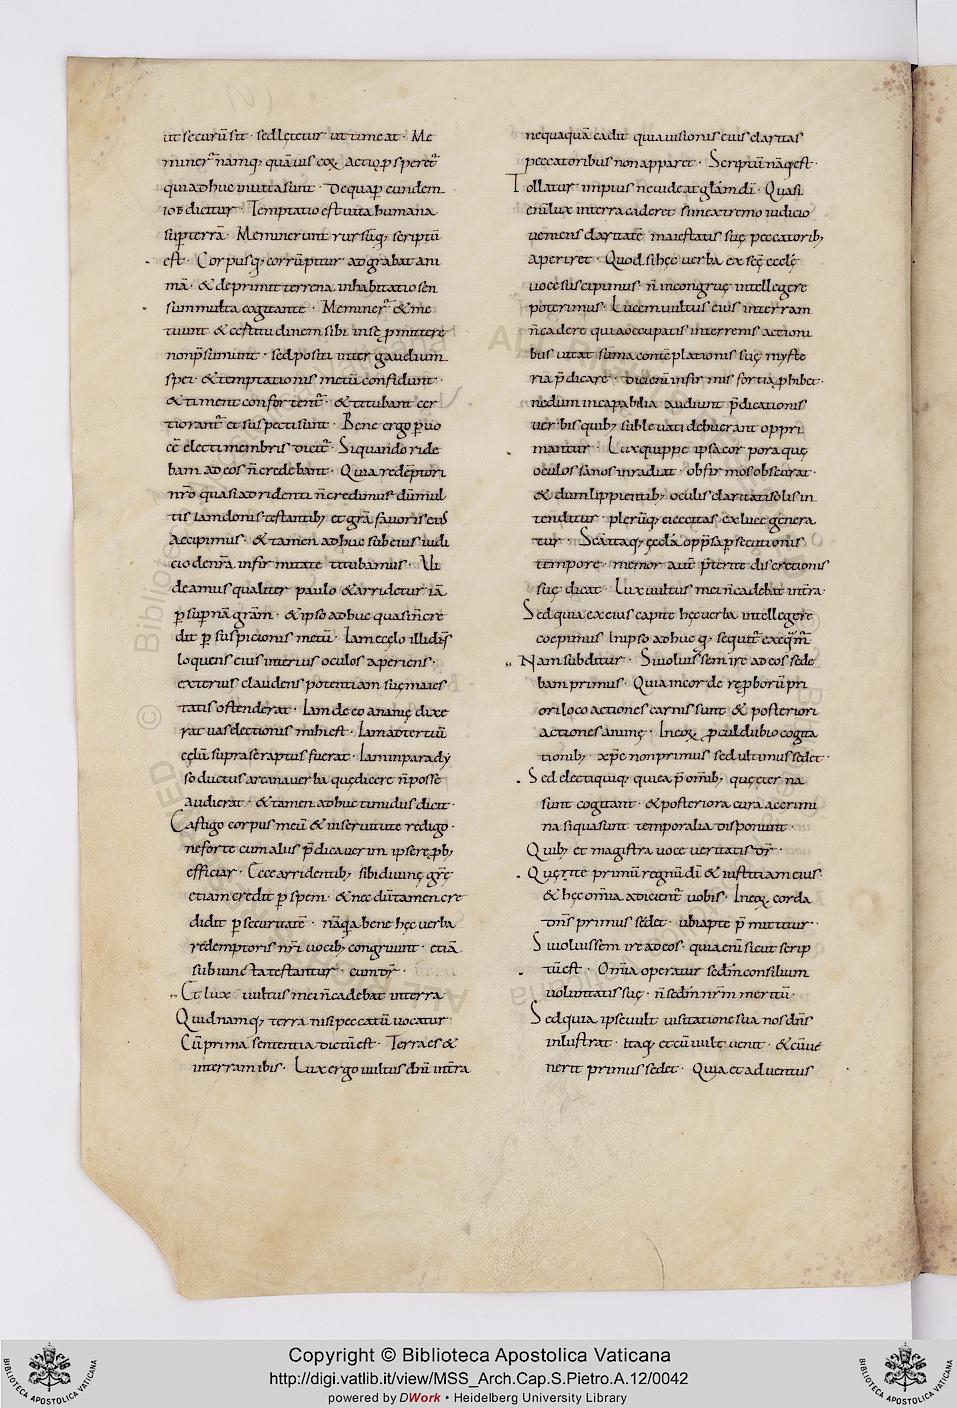 ut securū sit · sed lętetur ut timeat · Me
miner̄ namq; quāuis eoꝝ actio ꝓsperet̄
qui adhuc inuita sunt · De qua ꝑ eundem
iob dicitur · Temptatio est uita humana
suꝑ terrā · Meminerunt rursūq; scriptū
est · Corpus q; corrūpitur adgrabat ani
mā · & deprimit terrena inhabitatio sen
sum multa cogitantē · Meminer̄ & me
tuunt & certitudinem sibi in se ꝓmittere
non p̄sumunt · sed positi inter gaudium
spei · & temptationis metū confidunt ·
& timent confortent̄ · & titubant cer
tiorant̄ et suspecti sunt · Bene ergo ꝑ uo
cē electi membris dicit̄ · Siquando ride
bam ad eos n̄ credebant · Quia redēptori
nr̄o quasi adridenti n̄ credimus dū mul
tis iam donis testantib; et grā fauoris eius
accipimus · & tamen adhuc sub eius iudi
cio de nr̄a infirmitate titubamus · Ui
deamus qualiter paulo & arridetur iā
ꝑ supnā grām · & ipso adhuc quasi n̄ cre
dit ꝑ suspicionis metū · Iam e cęlo illi dīs
loquens eius interius oculos aperiens ·
exterius claudens potentiam suę maies
tatis ostenderat · Iam de eo ananię dixe
rat uas electionis mihi est · Iam ad tertiū
cęlū supra se raptus fuerat · Iam in parady
so ductus arcana uerba quę dicere n̄ posset
audierat · & tamen adhuc timidus dicit ·
Castigo corpus meū & in seruitute redigo ·
ne forte cum aliis p̄dicauerim ipse repb;
efficiar · Ecce arridentib; sibi diuinę grę
etiam credit ꝑ spem · & necdū tamen cre
didit ꝑ securitatē · nāq̄ bene hęc uerba
redemptoris nr̄i uocib; congruunt · etiā
subiuncta testantur · cum dr̄ ·
Et lux uultus mei n̄ cadebat in terra
Quid namq; terra nisi peccatū uocatur ·
Cū prima sententia dictū est · Terra es &
in terram ibis · Lux ergo uultus dnī in tr̄a
nequaquā cadit quia uisionis eius claritas
peccatoribus non apparet · Scriptū nāq; est ·
Tollatur impius ne uideat głam dī · Quasi
eni lux in terra caderet si in extremo iudicio
ueniens claritatē maiestatis suę peccatorib;
aperiret · Quod si hęc uerba ex scę ecclę
uoce suscipimus n̄ incongruę intellegere
poterimus · Lucem uultus eius in terram
n̄ cadere quia occupatis in terrenis actioni
bus uitat suma contēplationis suę myste
ria p̄dicare · dicieni infirmis fortia ꝓhibet ·
ne dum incapabilia audiunt p̄dicationis
uerbis quib; subleuati debuerant oppri
mantur · Lux quippe ipsa corpora quę
oculos sanos inradiat · obfirmos obscurat ·
& dum lippientib; oculis claritas solis in
tenditur · plerūq; ei cecitas ex luce genera
tur · Scā itaq; ęccła opp̄sa ꝑsecutionis
tempore memor aut p̄teritę discretionis
suę dicat · Lux uultus mei n̄ cadebat in tr̄a ·
Sed quia ex eius capite hęc uerba intellegere
coepimus
Nam subditur · Si uoluissem ire ad eos sede
bam primus · Quia in corde reꝓborū pri
ori loco actiones carnis sunt & posteriori
actiones animę · In eoꝝ ꝓculdubio cogita
tionib; xp̄c non primus sed ultimus sedet ·
Sed electi quiq; quia ea p̄ omīb; quę eterna
sunt cogitant · & posteriora cura ac extremi
na si qua sunt temporalia disponunt ·
Quib; et magistra uoce ueritatis dr̄ ·
Quęrite primū regnū dī & iustitiam eius
& hęc omīa adicient̄ uobis · In eoꝝ corda
dn̄s primus sedet · ubi apte p̄mittitur ·
Si uoluissem ire ad eos · quia enī sicut scrip
tū est · Omīa operatur scdm consilium
uoluntatis suę · n̄ scdm nr̄m meritū ·
Sed quia ipse uult uisitatione sua nos dn̄s
inlustrat · itaq; et cū uult uenit · & cū ue
nerit primus sedet · Quia et aduentus
Copyright © Biblioteca Apostolica Vaticana
http://digi.vatlib.it/view/MSS_Arch.Cap.S.Pietro.A.12/0042
powered by DWork • Heidelberg University Library